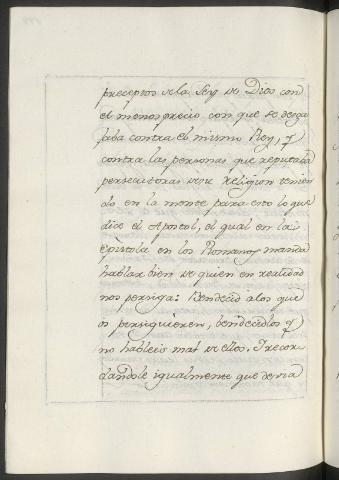 preceptos de la Ley de Dios con
el menosprecio con que se desga
jaba contra el mismo Rey, y
contra las personas que reputaba
persecutoras de su Religion tenien
do en la mente para esto lo que
dice el Apostol, el qual en la
Epistola en los Romanos manda
hablar bien de quien en realidad
nos persiga: Bendecid a los que
os persiguieren, bendecidlos y
no hableis mal de ellos. Y recor
dandole igualmente que devia